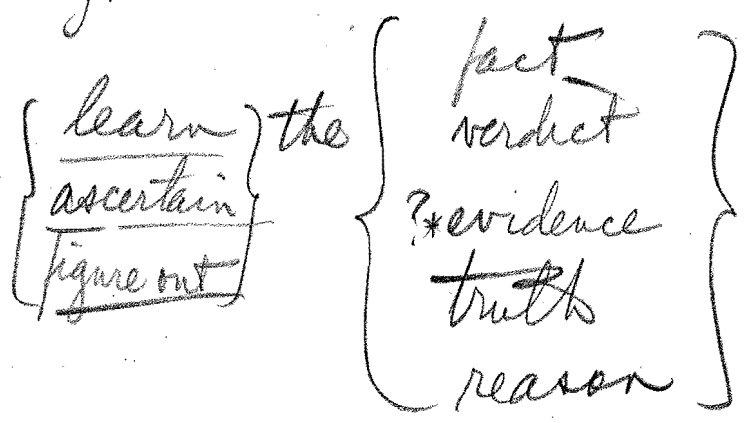 learn
ascertain
figure out
the
fact
verdict
?*evidence
truth
reason